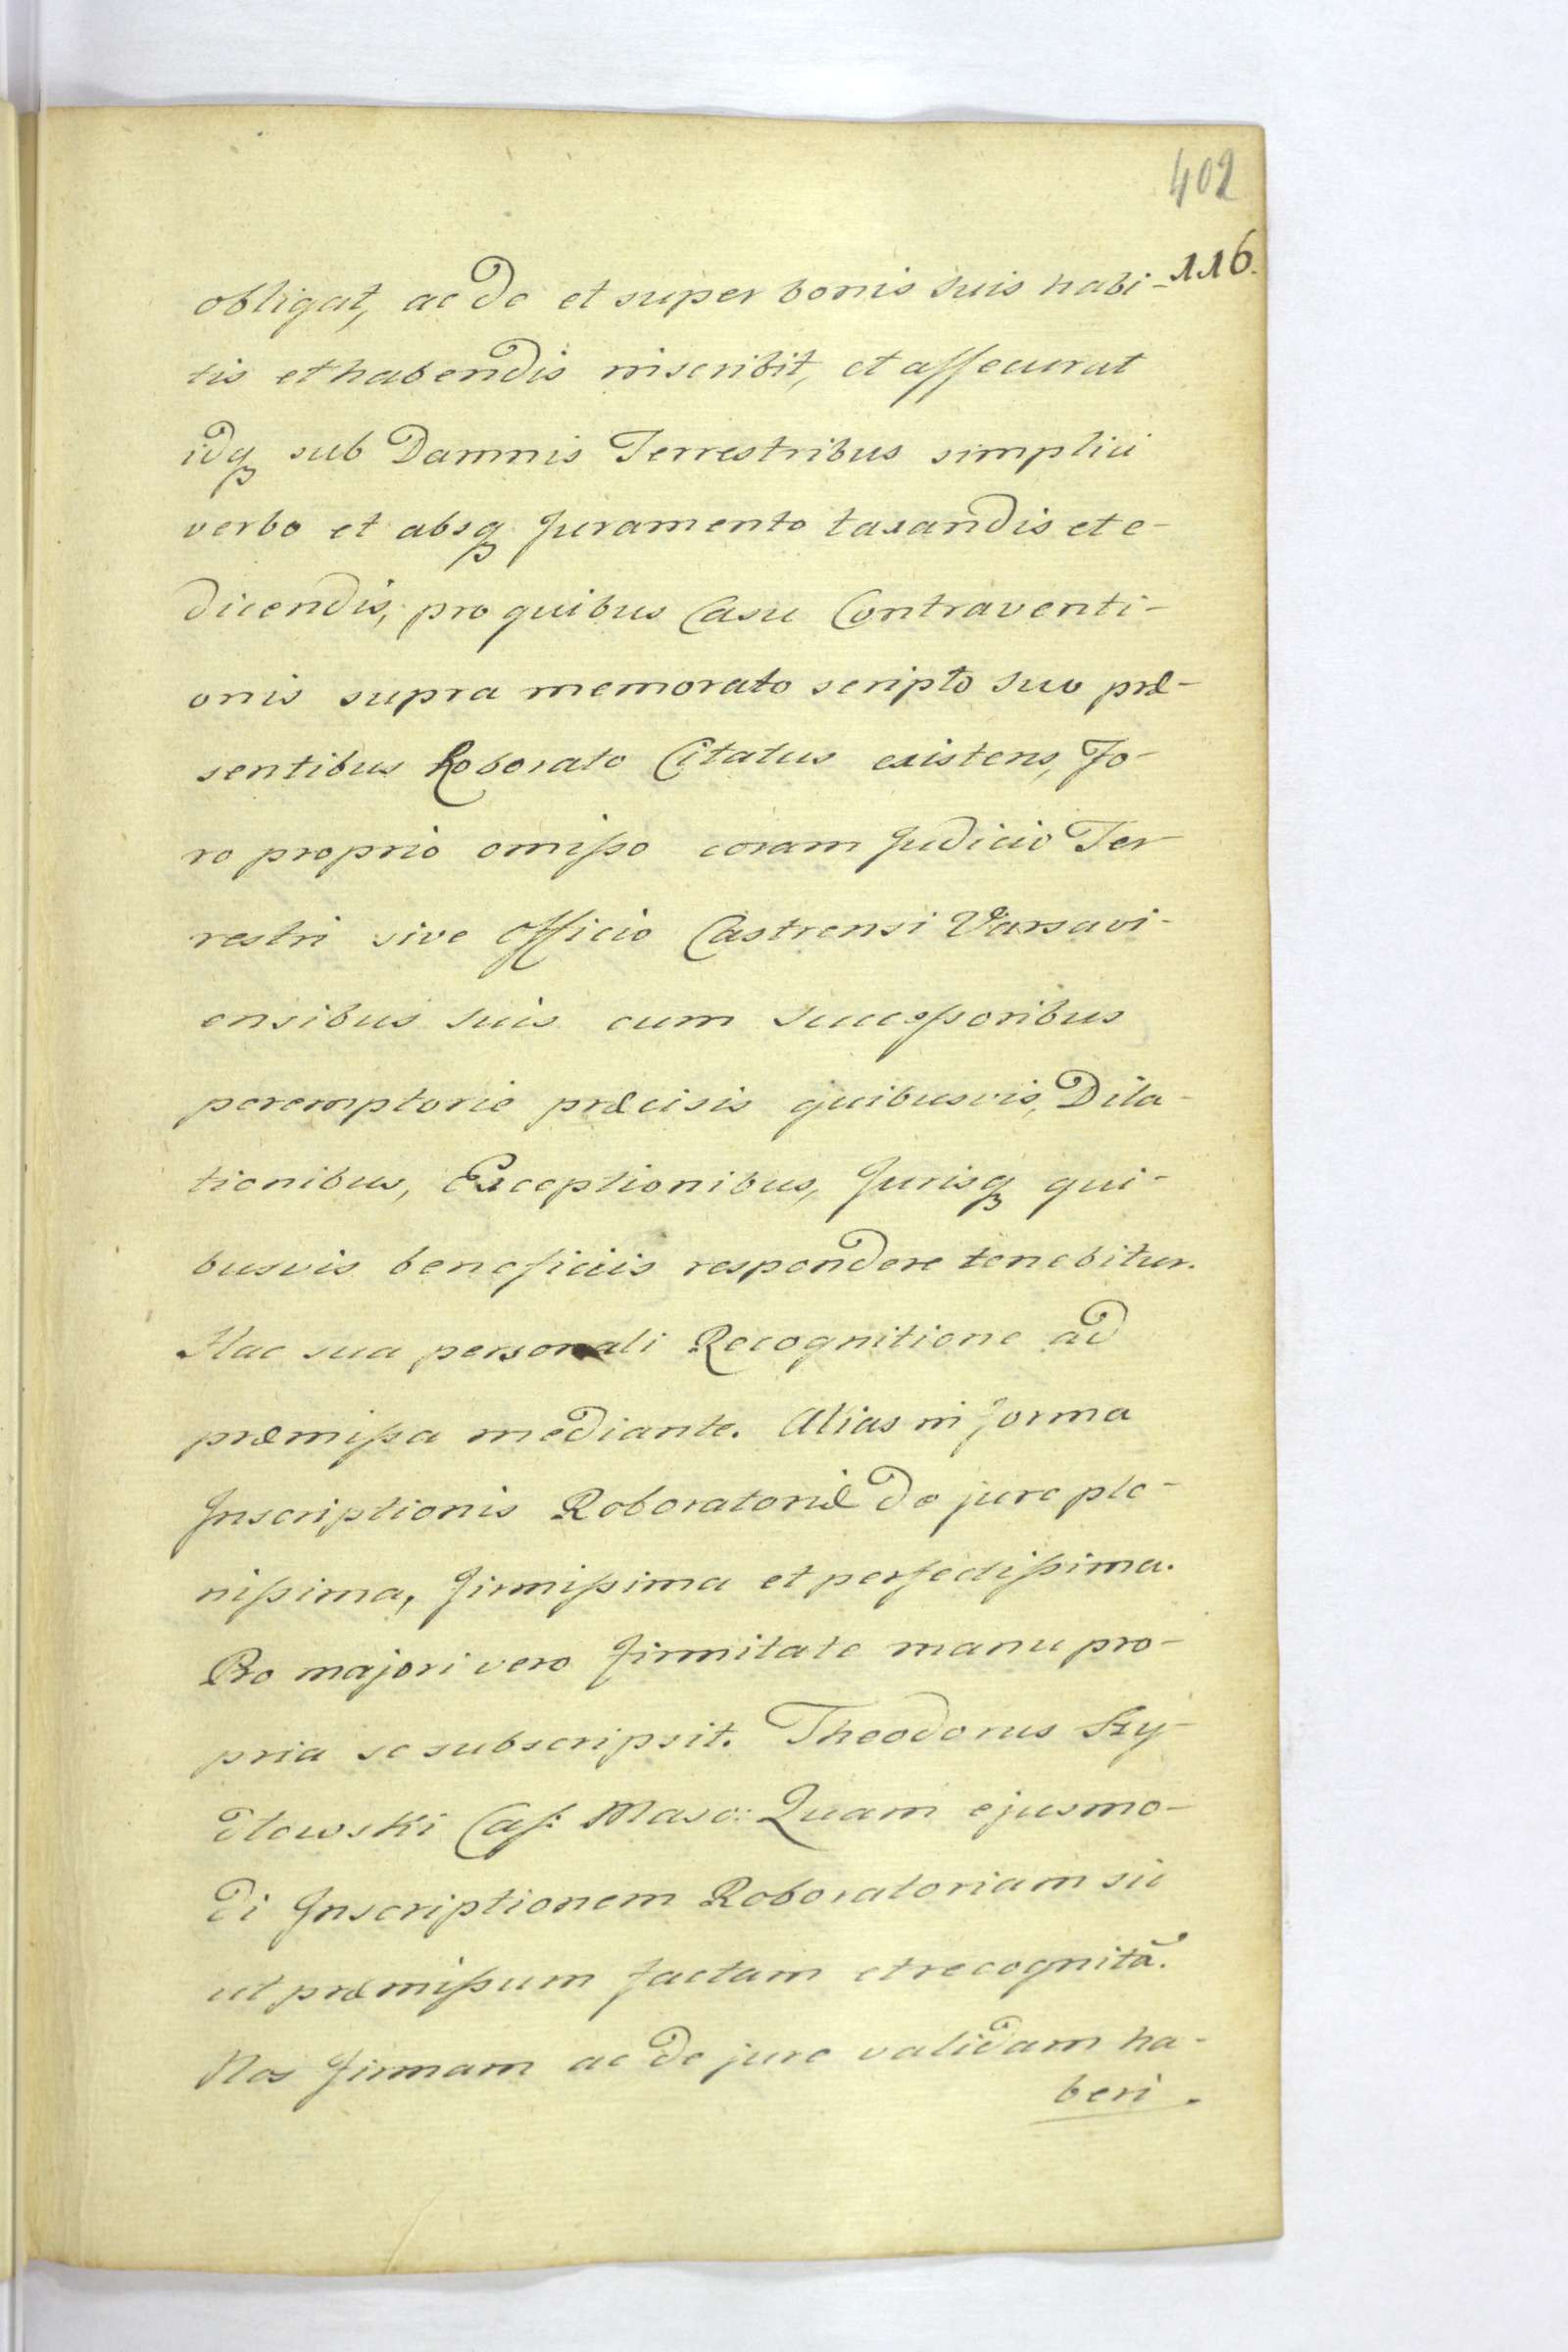 402
116.
obligat, ac de et super bonis suis habi-
tis et habendis inscribit, et assecurat
idq3 sub Damnis Terrestribus simplici
verbo et absq3 Juramento taxandis et e-
dicendis, pro quibus Casu Contraventi-
onis supra memorato scripto suo præ-
sentibus Roborato Citatus existens, Fo-
ro proprio omisso coram Judicio Ter
restri sive Officio Castrensi Varsavi-
ensibus suis cum successoribus
peremptorie præcisis quibusvis, Dila-
tionibus, Exceptionibus, Jurisq3 qui-
busvis beneficiis respondere tenebitur.
Hac sua personali Recognitione ad
præmissa mediante. Alias in forma
Inscriptionis Roboratoriæ de jure ple-
nissima, firmissima et perfectissima.
Pro majori vero firmitate manu pro-
pria se subscripsit. Theodorus Szy-
dłowski Cas: Maso: Quam ejusmo-
di Inscriptionem Roboratoriam sic
ut præmissum factam et recognitā.
Nos firmam ac de jure validam ha-
beri.